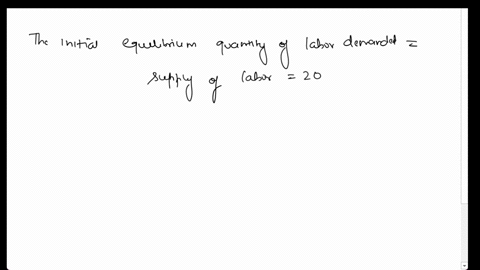 The initial equilibrium quantity of labor demanded =
supply of labor = 20